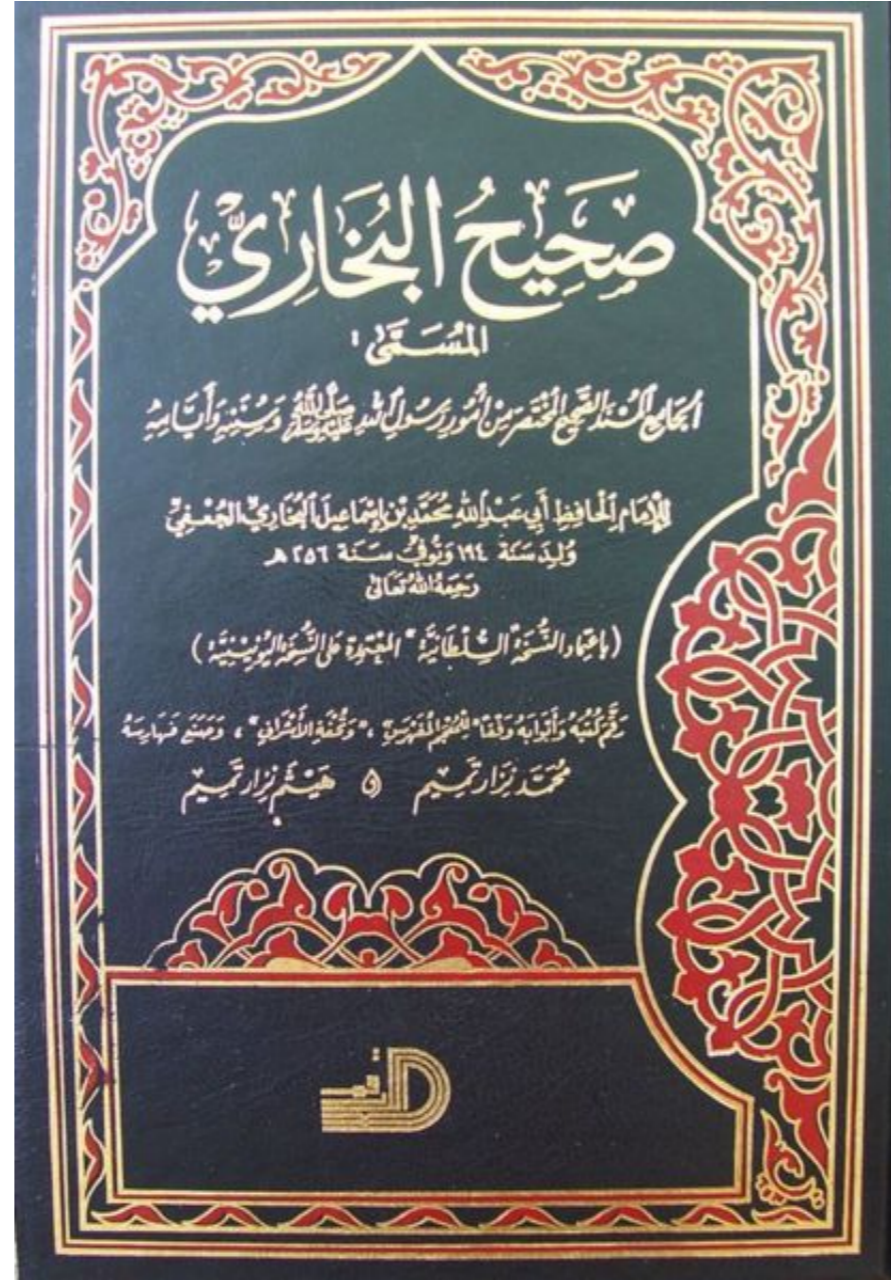 صَحِيحُ البُخَارِيّ
المُسَمَّى :
الجَامِعُ المُسْنَدُ الصَّحِيحُ المُخْتَصَرُ مِنْ أُمُورِ رَسُولِ اللهِ ﷺ وَسُنَنِهِ وَأَيَّامِهِ
لِلإِمَامِ الحَافِظِ أَبِي عَبْدِ اللهِ مُحَمَّدِ بْنِ إِسْمَاعِيلَ البُخَارِيِّ الجُعْفِيِّ
وُلِدَ سَنَة ١٩٤ وَتُوُفِّيَ سَنَة ٢٥٦ هـ
رَحِمَهُ اللهُ تَعَالَى
(بِاعْتِمَادِ النُّسْخَةِ السُّلْطَانِيَّةِ " المُعْتَمِدَةِ عَلَى النُّسْخَةِ اليُونِينِيَّةِ)
رَقَّمَ كُتُبَهُ وَأَبْوَابَهُ وَفْقًا "لِلْمُعْجَمِ المُفَهْرَسِ" ، "وَتُحْفَةِ الأَشْرَافِ" ، وَصَنَعَ فَهَارِسَهُ
مُحَمَّد نِزَار تَمِيم و هَيْثَم نِزَار تَمِيم